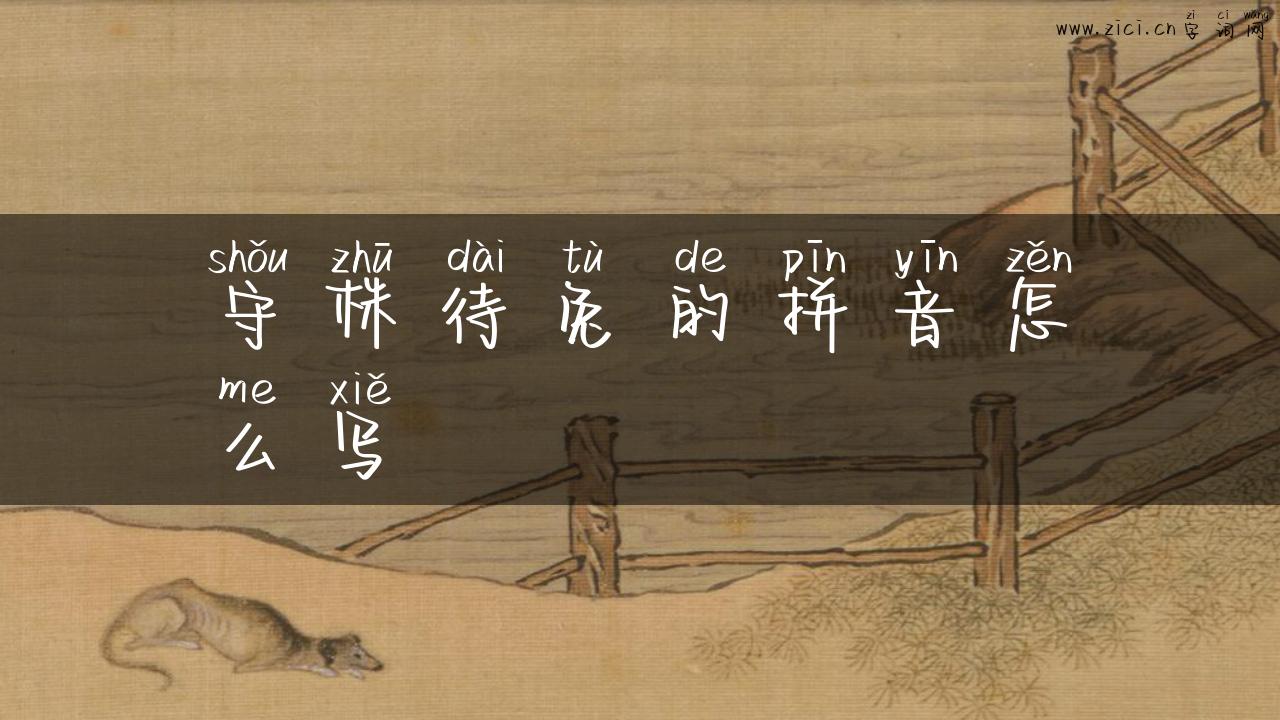 zì cí wǎng
www.zici.cn 字词网
shǒu zhū dài tù de pīn yīn zěn
守株待兔的拼音怎
me xiě
么写